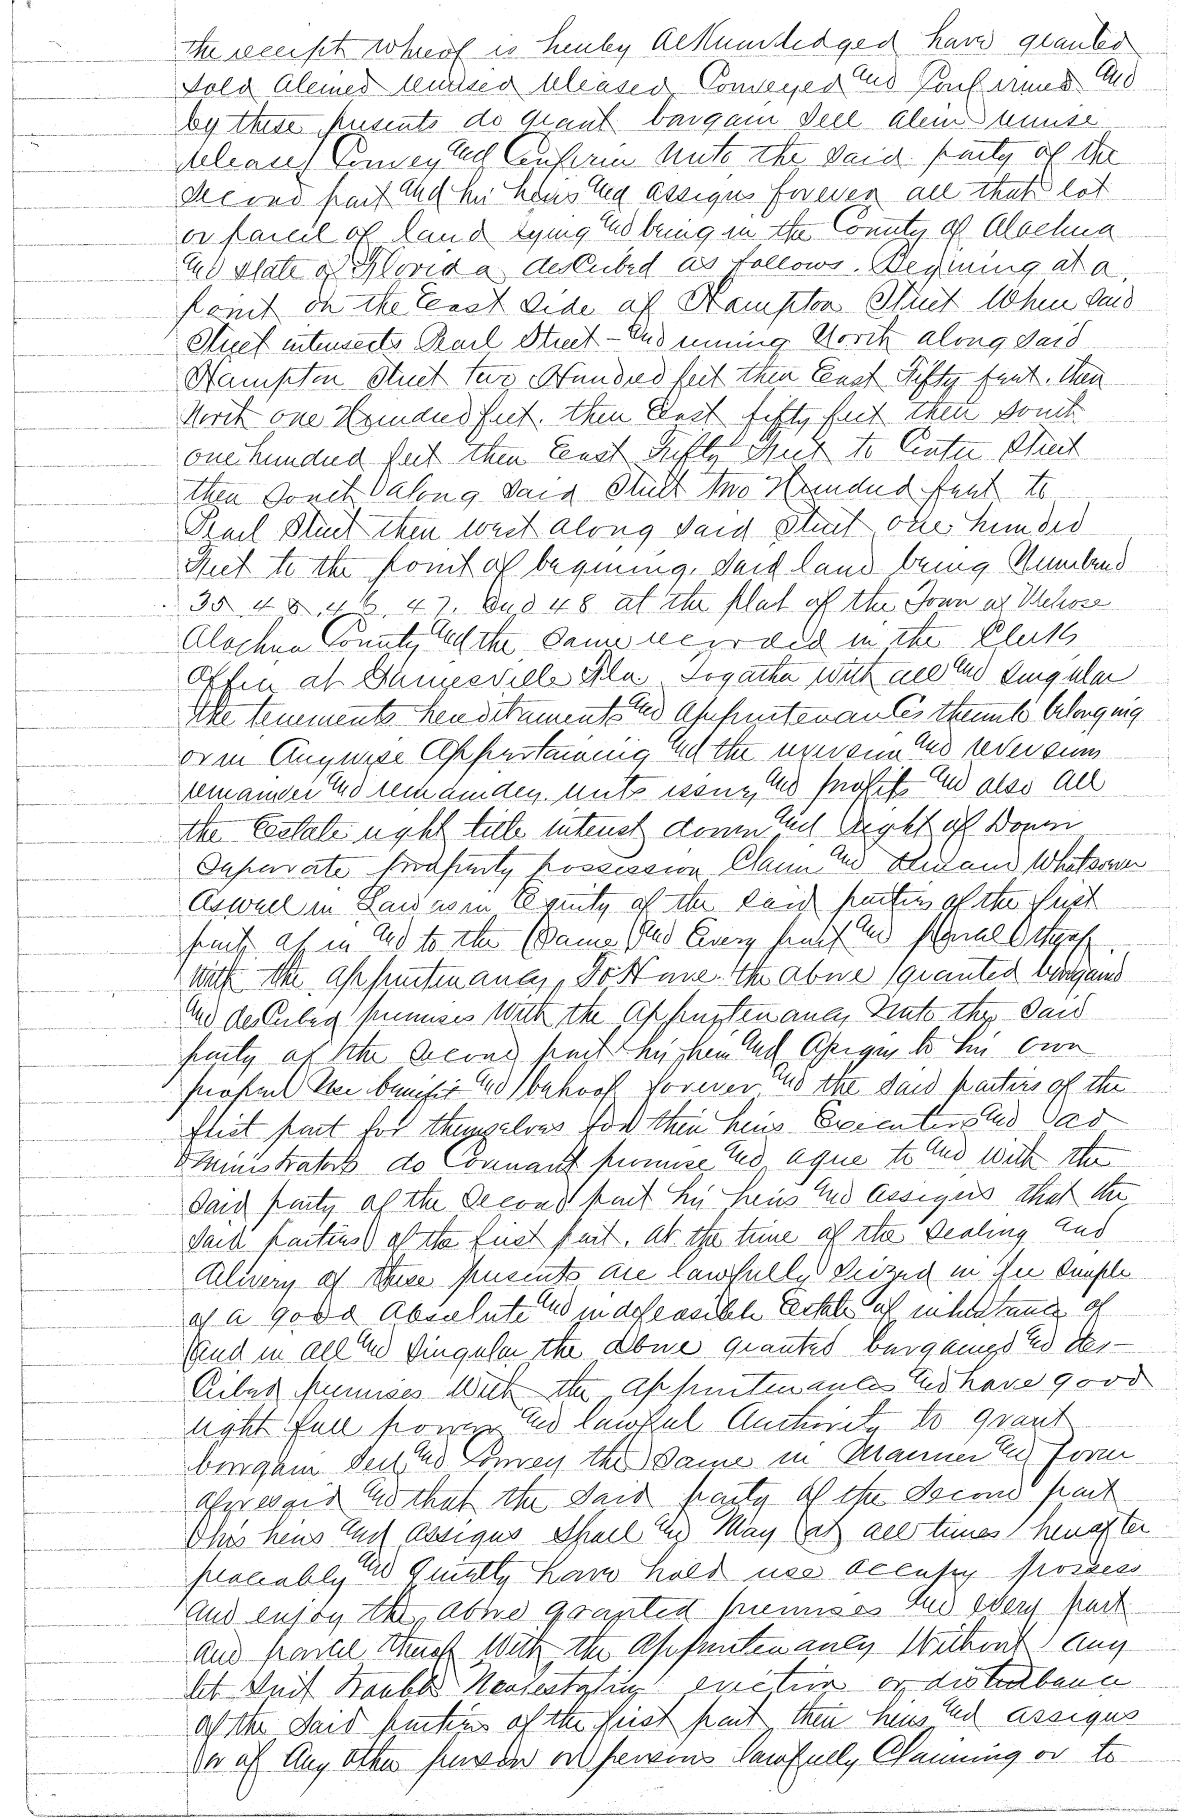 the receipt whereof is hereby acknowledged have granted
sold aleined remised released Conveyed and Confirmed and
by these presents do grant bargain sell alein remise
release Convey and Confirm unto the said party of the
second part and his heirs and assigns forever all that lot
or parcel of land lying and being in the County of Alachua
and state of Florida described as follows. Begining at a
point on the East side of Hampton Street When said
Street intersects Pearl Street - and runing North along said
Hampton Street two Hundred feet then East Fifty feet. then
North one Hundred feet. then East fifty feet then south
one hundred feet then East Fifty Feet to Center Street
then south along said Street two Hundred feet to
Pearl Street then west along said Street one hundred
Feet to the point of begining. said land being Numbered
35 45. 46. 47. and 48 at the plat of the Town of Melrose
Alachua County and the same recorded in the Clerks
Office at Gainesville Fla. Togather with all and singular
the tenements hereditaments and appurtenances thereunto belonging
or in Anywise Appertaining and the reversion and reversions
remainder and remainders rents issues and profits and also all
the Estate right title interest dower and right of Dower
Seperate propperty possession Claim and demand Whatsoever
as well in Law as in Equity of the said parties of the first
part of in and to the same and Every part and parcel thereof
with the appurtenances, To Have the above granted bargained
and described premises With the appurtenances Unto the said
party of the second part his heirs and Assigns to his own
proper use benefit and behoof forever and the said parties of the
first part for themselves for their heirs Executers and ad
ministrators do Covenant promise and agree to and with the
said party of the second part his heirs and assigns that the
said parties of the first part. at the time of the sealing and
delivery of these presents are lawfully seized in fee simple
of a good absolute and indefeasible Estate of inheritance of
and in all and singular the above granted bargained and des-
cribed premises with the appurtenances and have good
right full power and lawful Authority to grant
bargain sell and Convey the same in manner and form
aforesaid and that the said party of the second part
his heirs and assigns shall and May at all times hereafter
peaceably and Quietly have hold use occupy possess
and enjoy the above granted premises and every part
and parcel thereof With the appurtenances Without any
let suit trouble eviction or disturbance
of the said parties of the first part, their heirs and assigns
or of Any other person or persons lawfully Claiming or to